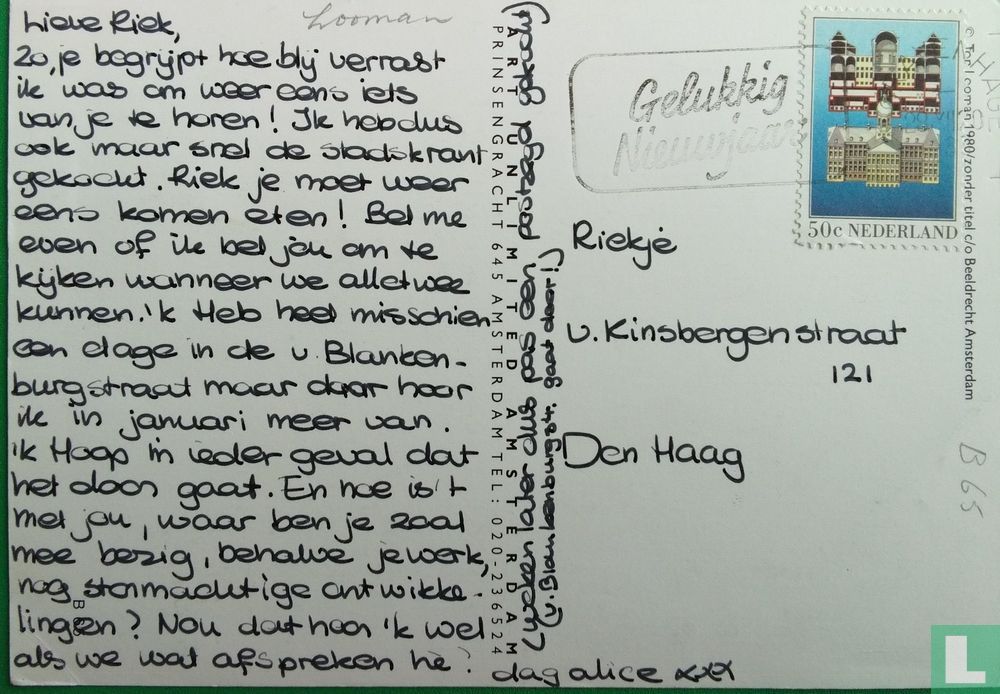 Lieve Riek,
Zo, je begrijpt hoe blij verrast
ik was om weer eens iets
van je te horen! Ik heb dus
ook maar snel de stadskrant
gekocht. Riek je moet weer
eens komen eten! Bel me
even of ik bel jou om te
kijken wanneer we alletwee
kunnen. 'k Heb heel misschien
een etage in de v. Blanken-
burgstraat maar daar hoor
ik in januari meer van.
'k Hoop in ieder geval dat
het door gaat. En hoe is 't
met jou, waar ben je zoal
mee bezig, behalve je werk,
nog stormachtige ontwikke-
lingen? Nou dat hoor 'k wel
als we wat afspreken hè?
dag alice xxx
(weken later dus pas een postzegel gekocht)
(v. Blankenburgstr. gaat door!)
Looman
ART UNLIMITED AMSTERDAM
PRINSENGRACHT 645 AMSTERDAM TEL: 020-236524
B 65
Gelukkig
Nieuwjaar
50c NEDERLAND
© Ton Looman 1980/zonder titel c/o Beeldrecht Amsterdam
Riekje
v. Kinsbergenstraat
121
Den Haag
B 65
L